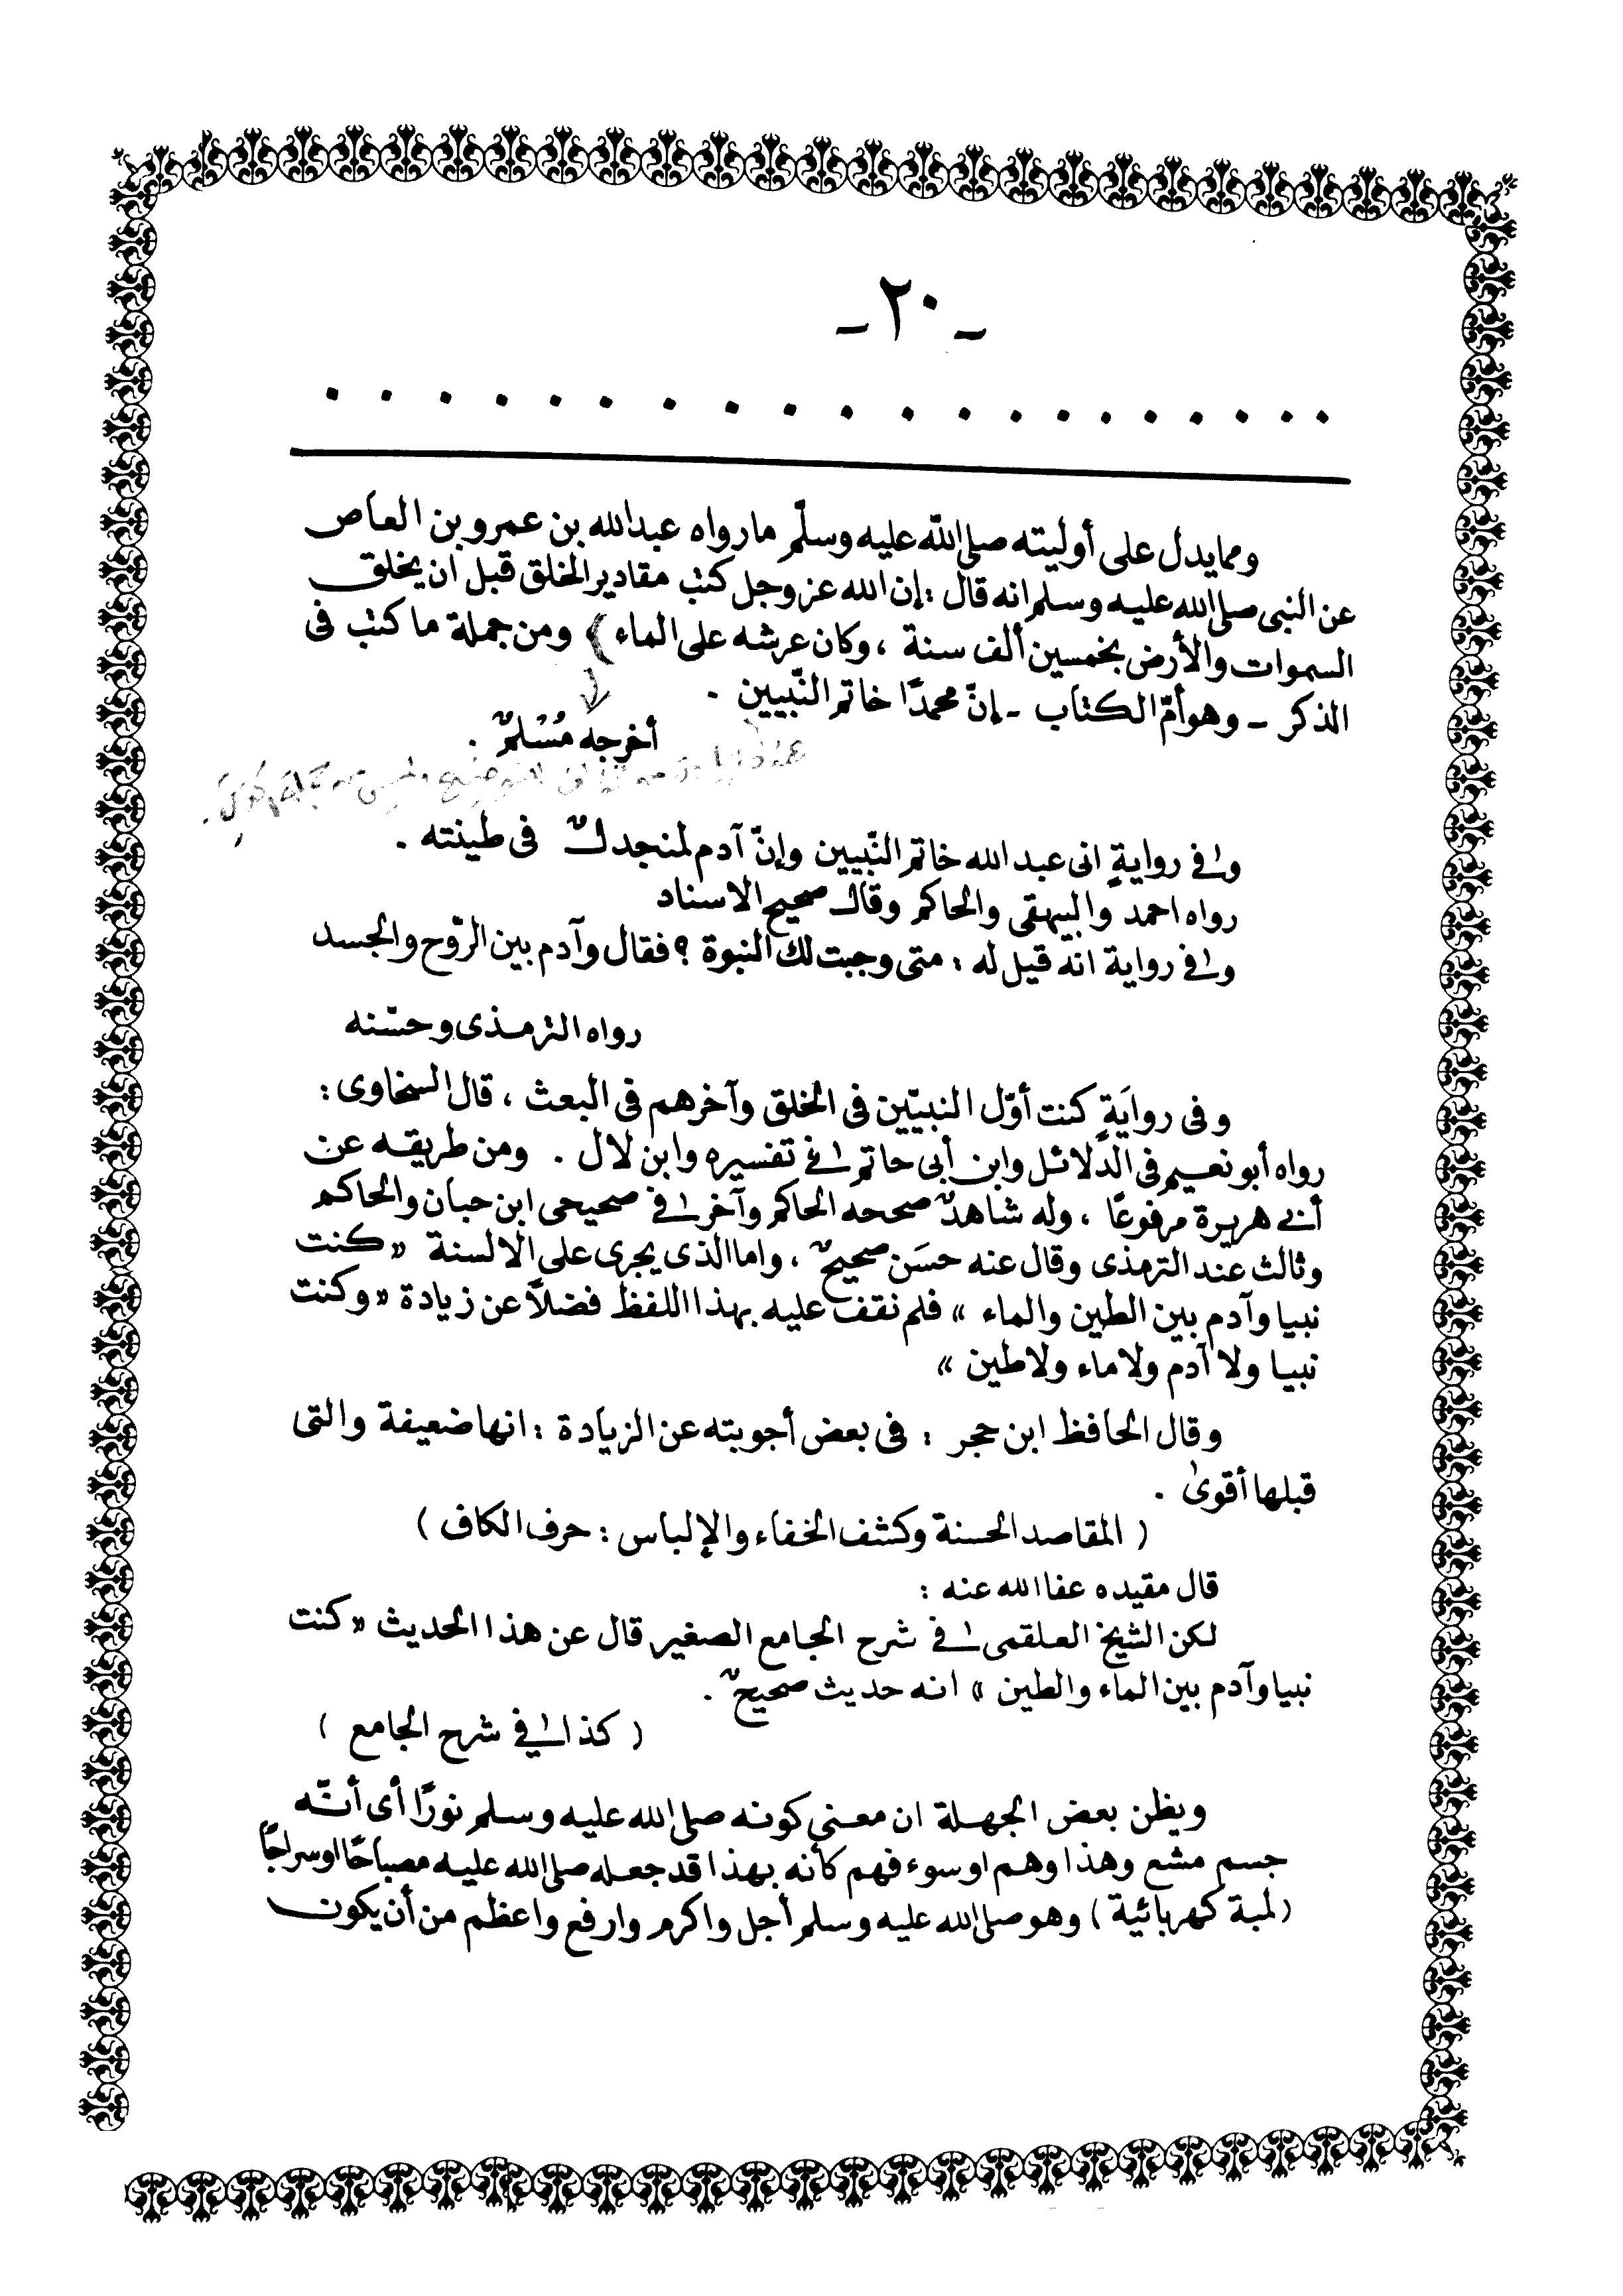 - ٢٠ -
. . . . . . . . . . . . . . . . . . .
ومما يدل على أوليته صلى الله عليه وسلّم ما رواه عبدالله بن عمرو بن العاص
عن النبى صلى الله عليه وسلم انه قال : إن الله عز وجل كتب مقادير الخلق قبل ان يخلق
السموات والأرض بخمسين ألف سنة ، وكان عرشه على الماء ) ومن جملة ما كتب فى
الذكر - وهو أمّ الكتاب - إنّ محمدًا خاتم النّبيين .
أخرجه مُسْلمٌ .
و فى روايةٍ انى عبد الله خاتم النّبيين وإنّ آدم لمنجدلٌ فى طينته .
رواه احمد والبيهقى والحاكم وقال صحيح الاسناد
و فى رواية انه قيل له : متى وجبت لك النبوة ؟ فقال وآدم بين الرّوح والجسد
رواه الترمذى وحسّنه
و فى روايَةٍ كنت أوّل النبيّين فى الخلق وآخرهم فى البعث ، قال السخاوى :
رواه أبو نعيم فى الدّلائل وابن أبى حاتم فى تفسيره وابن لال . ومن طريقه عن
أبى هريرة مرفوعًا ، وله شاهدٌ صححه الحاكم وآخر فى صحيحى ابن حبان والحاكم
وثالث عند الترمذى وقال عنه حسَن صحيحٌ ، واما الذى يجرى على الالسنة « كنت
نبيا وآدم بين الطين والماء » فلم نقف عليه بهذا اللفظ فضلاً عن زيادة « وكنت
نبيا ولا آدم ولا ماء ولا طين »
وقال الحافظ ابن حجر : فى بعض أجوبته عن الزيادة : انها ضعيفة والتى
قبلها أقوى .
( المقاصد الحسنة وكشف الخفاء والإلباس : حرف الكاف )
قال مقيده عفا الله عنه :
لكن الشيخ العلقمى فى شرح الجامع الصغير قال عن هذا الحديث « كنت
نبيا وآدم بين الماء والطين » انه حديث صحيحٌ .
( كذا فى شرح الجامع )
ويظن بعض الجهلة ان معنى كونه صلى الله عليه وسلم نورًا أى أنّه
جسم مشع وهذا وهم او سوء فهم كأنه بهذا قد جعله صلى الله عليه مصباحًا او سراجًا
( لمبة كهربائية ) وهو صلى الله عليه وسلم أجل واكرم وارفع واعظم من أن يكون